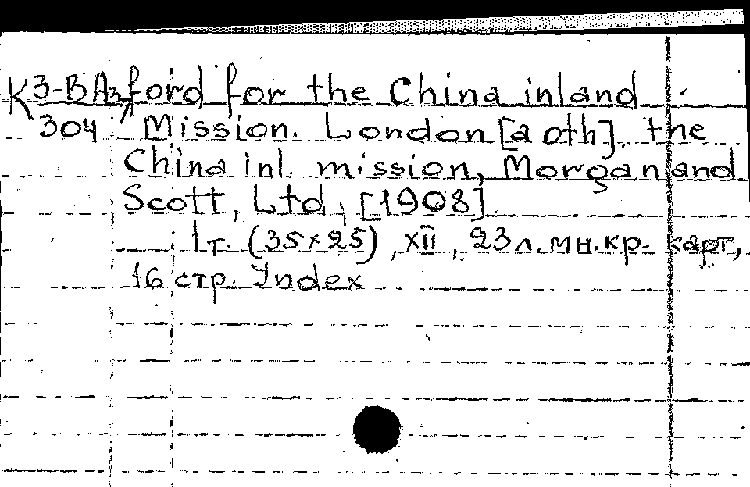 K3-BAз ford for the China inland
304 Mission. London [a oth], the
China inl. mission, Morgan and
Scott, Ltd, [1908]
1т. (35×25), XII, 23л.мн.кр. карт,
16 стр. Index